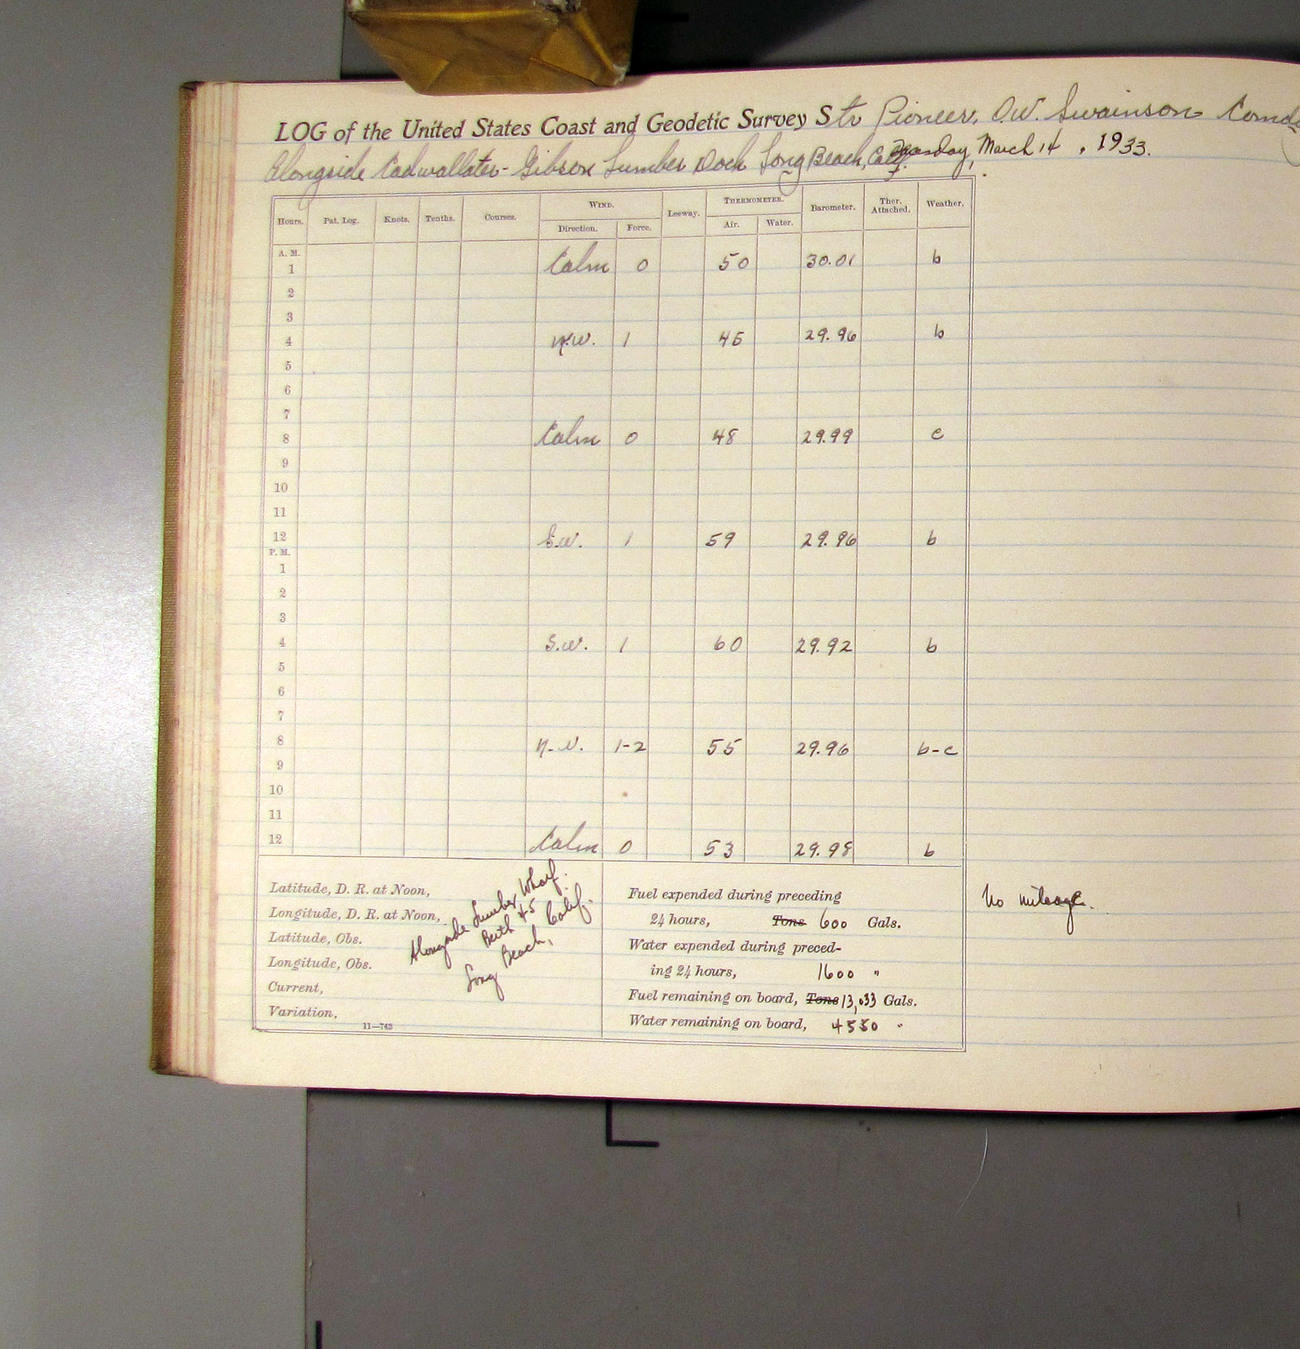 LOG of the United States Coast and Geodetic Survey Str Pioneer, O.W. Swainson Comd
Alongside Cadwallater-Gibson Lumber Dock Long Beach, Calif. day, March 14, 1933.
Hours. Pat. Log. Knots. Tenths. Courses. WIND. Leeway. THERMOMETER. Barometer. Ther. Attached. Weather.
Direction. Force. Air. Water.
A. M.
1 Calm 0 50 30.01 b
2
3
4 N.W. 1 45 29.96 b
5
6
7
8 Calm 0 48 29.99 c
9
10
11
12 S.W. 1 59 29.96 b
P. M.
1
2
3
4 S.W. 1 60 29.92 b
5
6
7
8 N-W. 1-2 55 29.96 b-c
9
10
11
12 Calm 0 53 29.98 b
Latitude, D. R. at Noon,
Longitude, D. R. at Noon,
Latitude, Obs.
Longitude, Obs.
Current,
Variation,
11—743
Alongside Lumber Wharf.
Berth 45
Long Beach, Calif.
Fuel expended during preceding
24 hours, Tons 600 Gals.
Water expended during preced-
ing 24 hours, 1600 "
Fuel remaining on board, Tons 13,033 Gals.
Water remaining on board, 4550 "
No mileage.